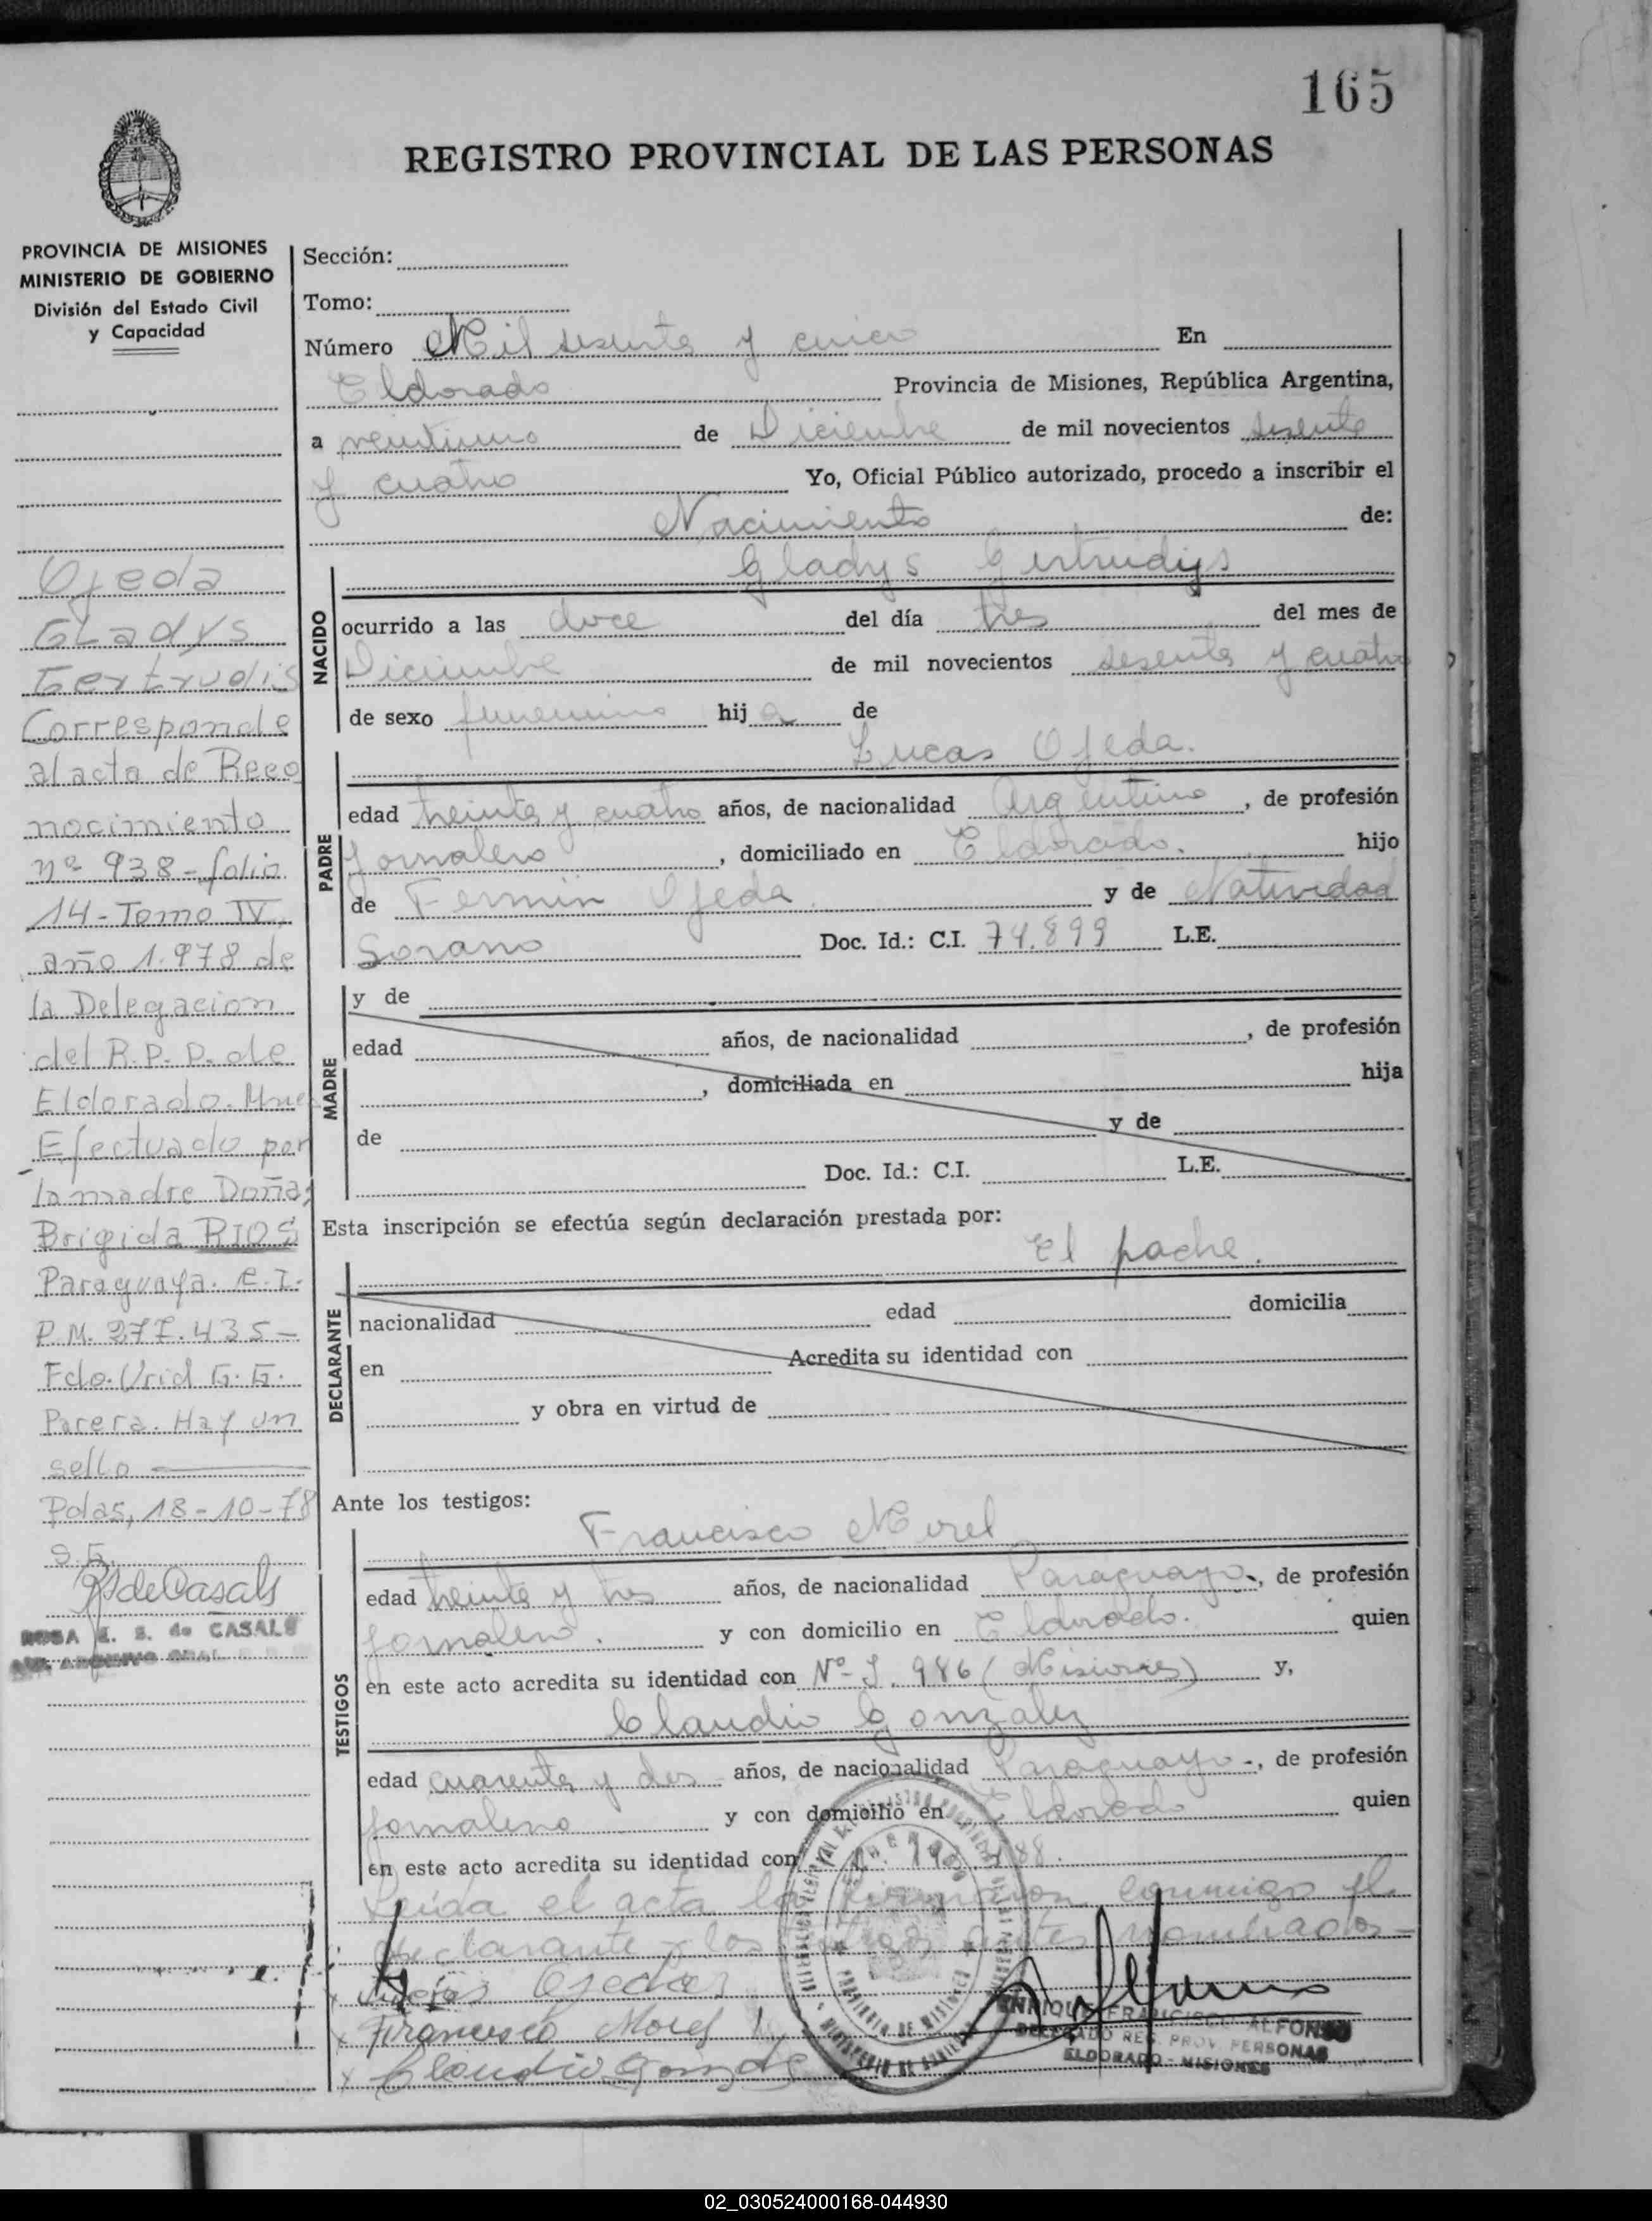 165
REGISTRO PROVINCIAL DE LAS PERSONAS
PROVINCIA DE MISIONES
MINISTERIO DE GOBIERNO
División del Estado Civil
y Capacidad
Ojeda
Gladys
Gertrudis
Corresponde
al acta de Reco
nocimiento
nº 938-folio
14-Tomo IV
año 1.978 de
la Delegacion
del R.P.P. de
Eldorado. Mnes
Efectuado por
la madre Doña
Brigida RIOS
Paraguaya. C.I.
P.M. 277.435-
Fdo. Urid G. G.
Parera. Hay un
sello
Pdas, 18-10-78
RSdeCasals
ROSA E. S. de CASALS
Sección:
Tomo:
Número Mil sesenta y cinco En
Eldorado Provincia de Misiones, República Argentina,
a veintiuno de Diciembre de mil novecientos sesenta
y cuatro Yo, Oficial Público autorizado, procedo a inscribir el
Nacimiento de:
Gladys Gertrudiys
NACIDO
ocurrido a las doce del día tres del mes de
Diciembre de mil novecientos sesenta y cuatro
de sexo femenino hija de
Lucas Ojeda.
PADRE
edad treinta y cuatro años, de nacionalidad Argentino, de profesión
Jornalero, domiciliado en Eldorado. hijo
de Fermin Ojeda y de Natividad
Sorano Doc. Id.: C.I. 74.899 L.E.
MADRE
y de
edad años, de nacionalidad , de profesión
, domiciliada en hija
de y de
Doc. Id.: C.I. L.E.
Esta inscripción se efectúa según declaración prestada por:
El padre.
DECLARANTE
nacionalidad edad domicilia
en Acredita su identidad con
y obra en virtud de
Ante los testigos:
Francisco Morel
TESTIGOS
edad treinta y tres años, de nacionalidad Paraguayo-, de profesión
Jornalero. y con domicilio en Eldorado. quien
en este acto acredita su identidad con Nº 986 (Misiones) y,
Claudio González
edad cuarenta y dos años, de nacionalidad Paraguayo-, de profesión
Jornalero y con domicilio en Eldorado quien
en este acto acredita su identidad con
Leida el acta la firmaron conmigo el
declarante y los testigos antes nombrados-
Lucas Ojeda
x Francisco Morel
x Claudio Gonzale
PROVINCIA DE MISIONES
ENRIQUE FRANCISCO ALFONSO
DELEGADO REG. PROV. PERSONAS
ELDORADO - MISIONES
02_030524000168-044930